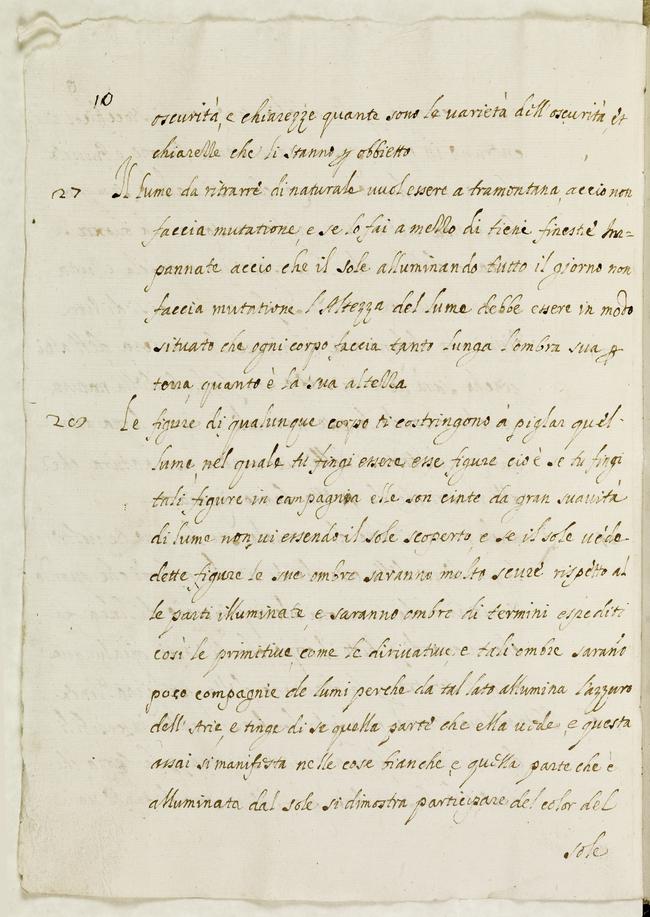 10
oscurità, e chiarezze quante sono le varietà dell'oscurità, et
chiarelle che li stanno p obbietto
27 Il lume da ritrarre di naturale vuol essere a tramontana, accio non
faccia mutatione, e se lo fai a mello di tiene finestre Im=
pannate accio che il sole alluminando tutto il giorno non
faccia mutatione l'Altezza del lume debbe essere in modo
situato che ogni corpo faccia tanto lunga l'ombra sua p
terra, quanto è la sua altella
28 Le figure di qualunque corpo ti costringono à piglar quel
lume, nel quale tu fingi essere, esse figure cioè se tu fingi
tali figure in campagnia elle son cinte da gran suavità
di lume non vi essendo il sole scoperto, e se il sole vede
dette figure le sue ombre saranno molto scure rispetto al
le parti illuminate, e saranno ombre di termini espediti
così le primitive, come le dirivative, e tali ombre saranno
poco compagnie de lumi perche da tal lato allumina l'azzuro
dell'Arie, e tinge di se quella parte che ella vede, e questa
assai si manifista nelle cose bianche, e quella parte che è
alluminata dal sole si dimostra participare del color del
sole